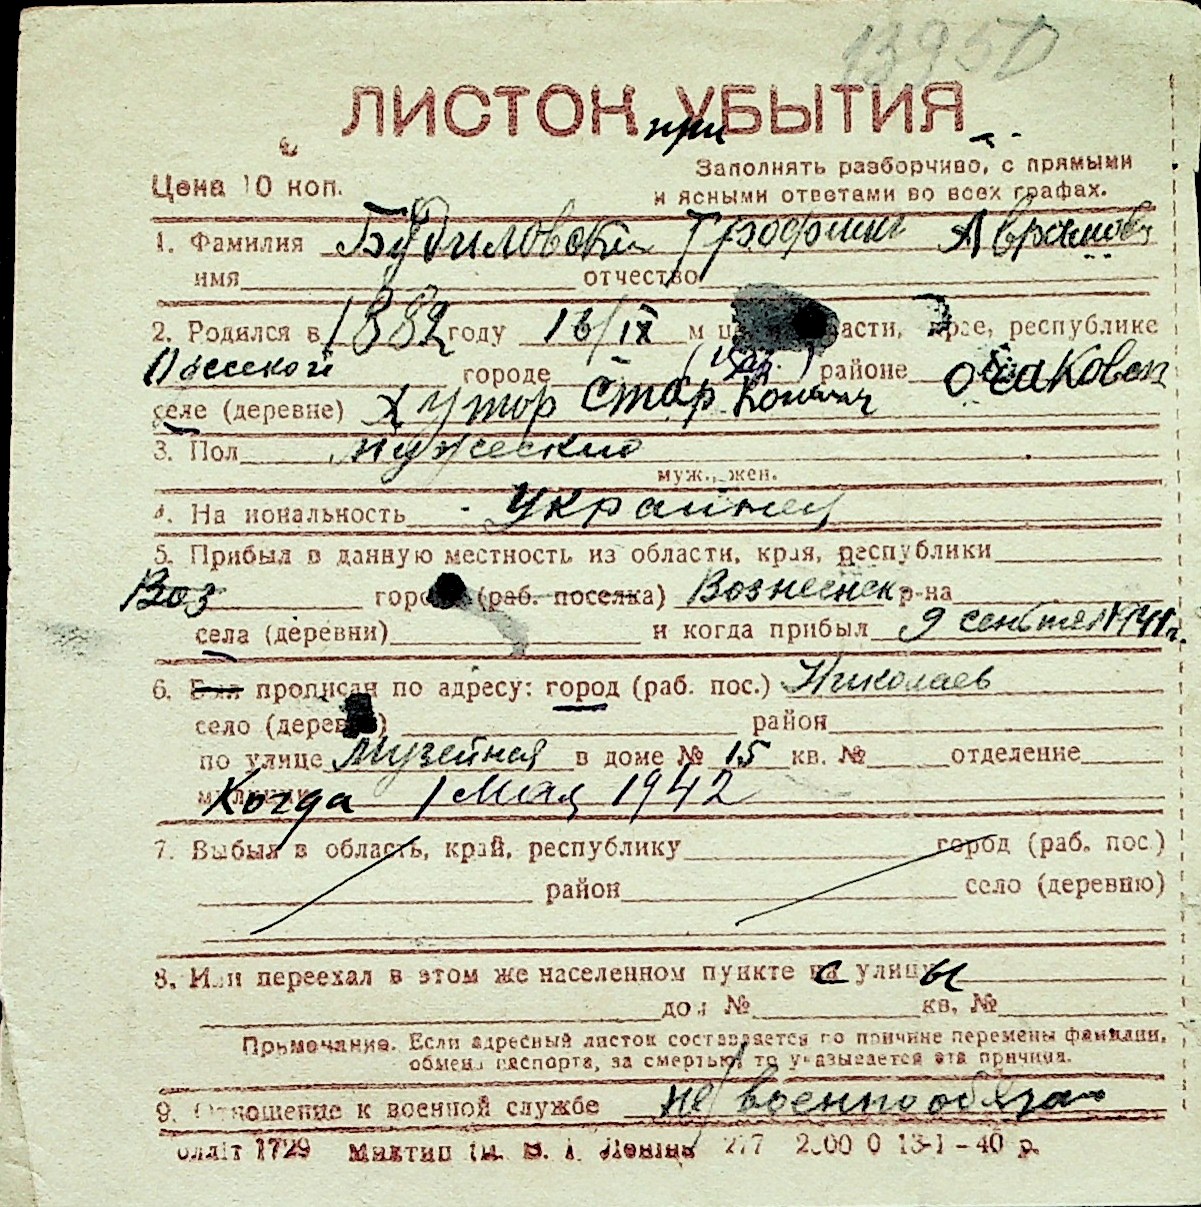 13950
ЛИСТОК УБЫТИЯ
при
Заполнять разборчиво, с прямыми
Цена 10 коп.
и ясными ответами во всех графах.
1. Фамилия Будиловски Трофим Аврамов
имя отчество
2. Родился в 1882 году 16/IX м области, крае, республике
Одесской городе районе Очаковск
селе (деревне) хутор Стар
3. Пол мужеский
муж., жен.
4. Национальность Украинец
5. Прибыл в данную местность из области, края, республики
Воз города (раб. поселка) Вознесенск р-на
села (деревни) и когда прибыл 9 сентяб 1941 г.
6. Был прописан по адресу: город (раб. пос.) Николаев
село (деревня) район
по улице Музейная в доме № 15 кв. № отделение
милиции Когда 1 Мая 1942
7. Выбыл в область, край, республику город (раб. пос.)
район село (деревню)
8. Или переехал в этом же населенном пункте на с улицы
дом № кв. №
Примечание. Если адресный листок составляется по причине перемены фамилии,
обмена паспорта, за смертью, то указывается эта причина.
9. Отношение к военной службе не военнообязан
Оblліт 1729 Миктип ім. В. І. Леніна 217 2000 0 13-I-40 р.